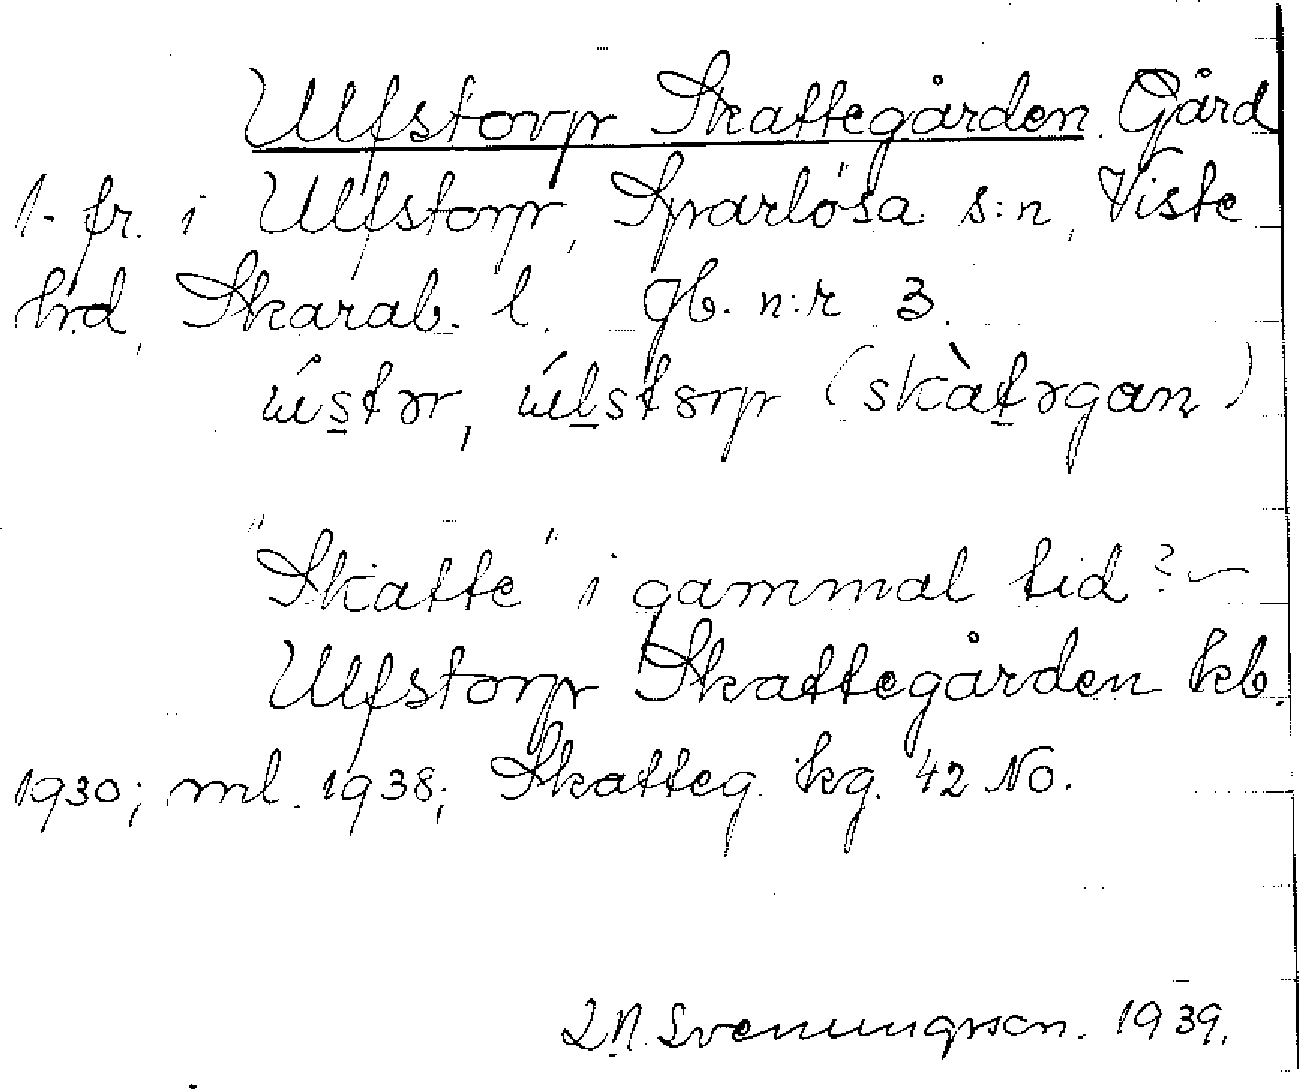 Ulfstorp Skattegården. Gård
1. fr. i Ulfstorp, Sparlösa s:n, Viste
hd, Skarab. l. Gb. n:r 3.
ústər, úlstorp (skàtəgan)
"Skatte" i gammal tid? –
Ulfstorp Skattegården kb.
1930; ml. 1938; Skatteg. kg. 42 No.
L.N. Svenungsson. 1939.